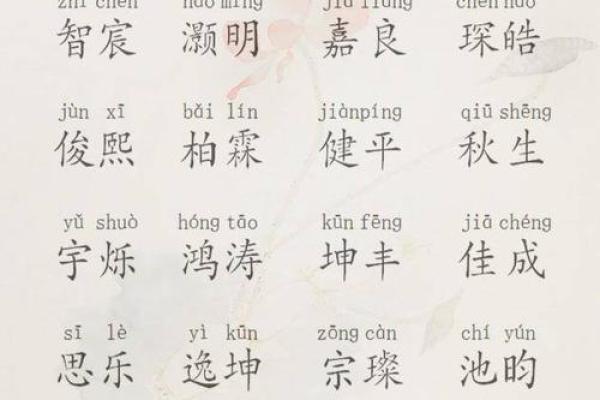 zhì chén hào míng jiā liáng chēn hào
智宸 灏明 嘉良 琛皓
jùn xī bǎi lín jiànpíng qiū shēng
俊熙 柏霖 健平 秋生
yǔ shuò hóng tāo kūn fēng jiā chéng
宇烁 鸿涛 坤丰 佳成
sī lè yì kūn zōng càn chí yún
思乐 逸坤 宗璨 池昀